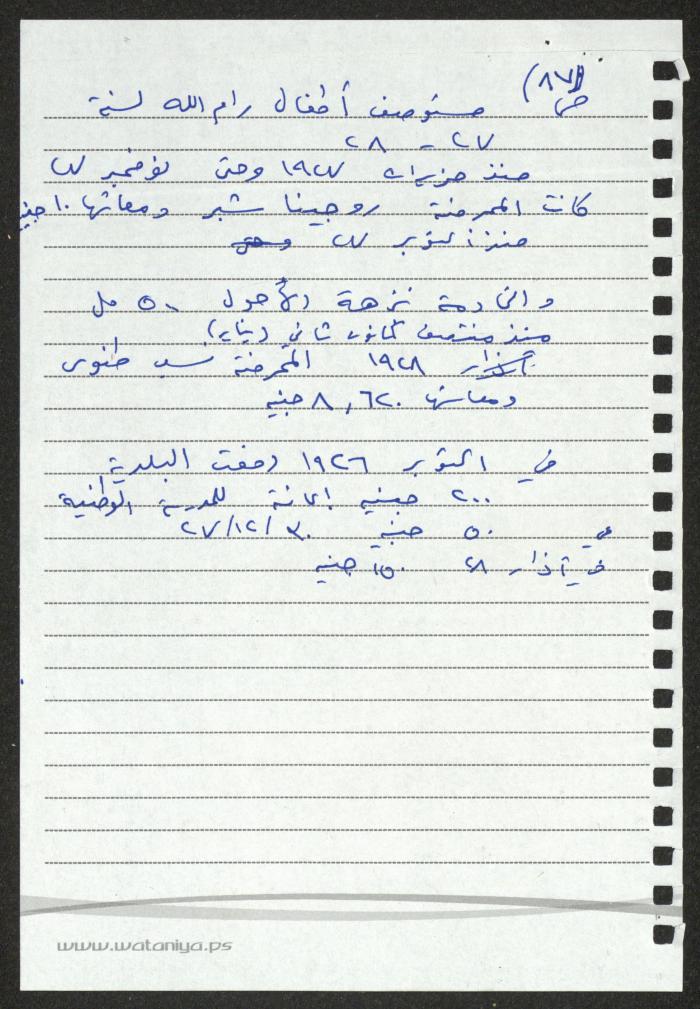 ص (٨٧)
مستوصف أطفال رام الله لسنة
٢٧ - ٢٨
منذ حزيران ١٩٢٧ وحتى نوفمبر ٢٧
كانت الممرضة روجينا شبر ومعاشها ١٠ جنيه
منذ أكتوبر ٢٧ وحتى
والخادمة نزهة الأحول ٥٠ مل
منذ منتصف كانون ثاني (يناير)
آذار ١٩٢٨ الممرضة طنوس
ومعاشها ٨,٦٢٠ جنيه
في أكتوبر ١٩٢٦ دفعت البلدية
٢٠٠ جنيه إعانة للمدرسة الوطنية
في ٥٠ جنيه ٢٧/١٢/٣٠
في آذار ٢٨ ١٥٠ جنيه
www.wataniya.ps